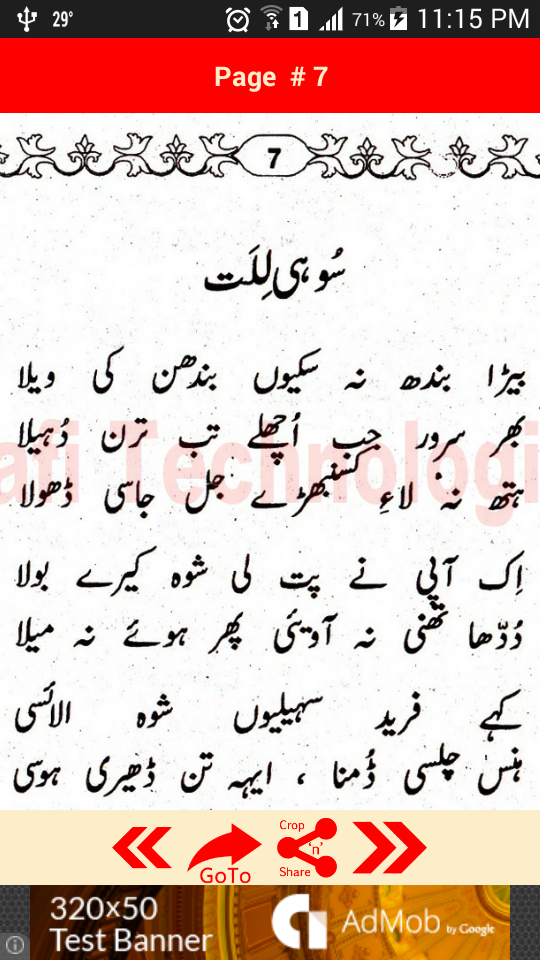 29°
1
71%
11:15 PM
Page # 7
7
سُوہی لِلَت
بیڑا بندھ نہ سکیوں بندھن کی ویلا
بھر سرور جب اُچھلے تب ترن دُہیلا
afi Technologi
ہتھ نہ لاءِ کسنبھڑے جل جاسی ڈھولا
اِک آپی نے پت لی شوہ کیرے بولا
دُدّھا تھنی نہ آویئی پھر ہوئے نہ میلا
کہے فرید سہیلیوں شوہ الائسی
ہنس چلسی ڈُمنا ، ایہہ تن ڈھیری ہوسی
GoTo
Crop
'n'
Share
320x50
Test Banner
AdMob by Google